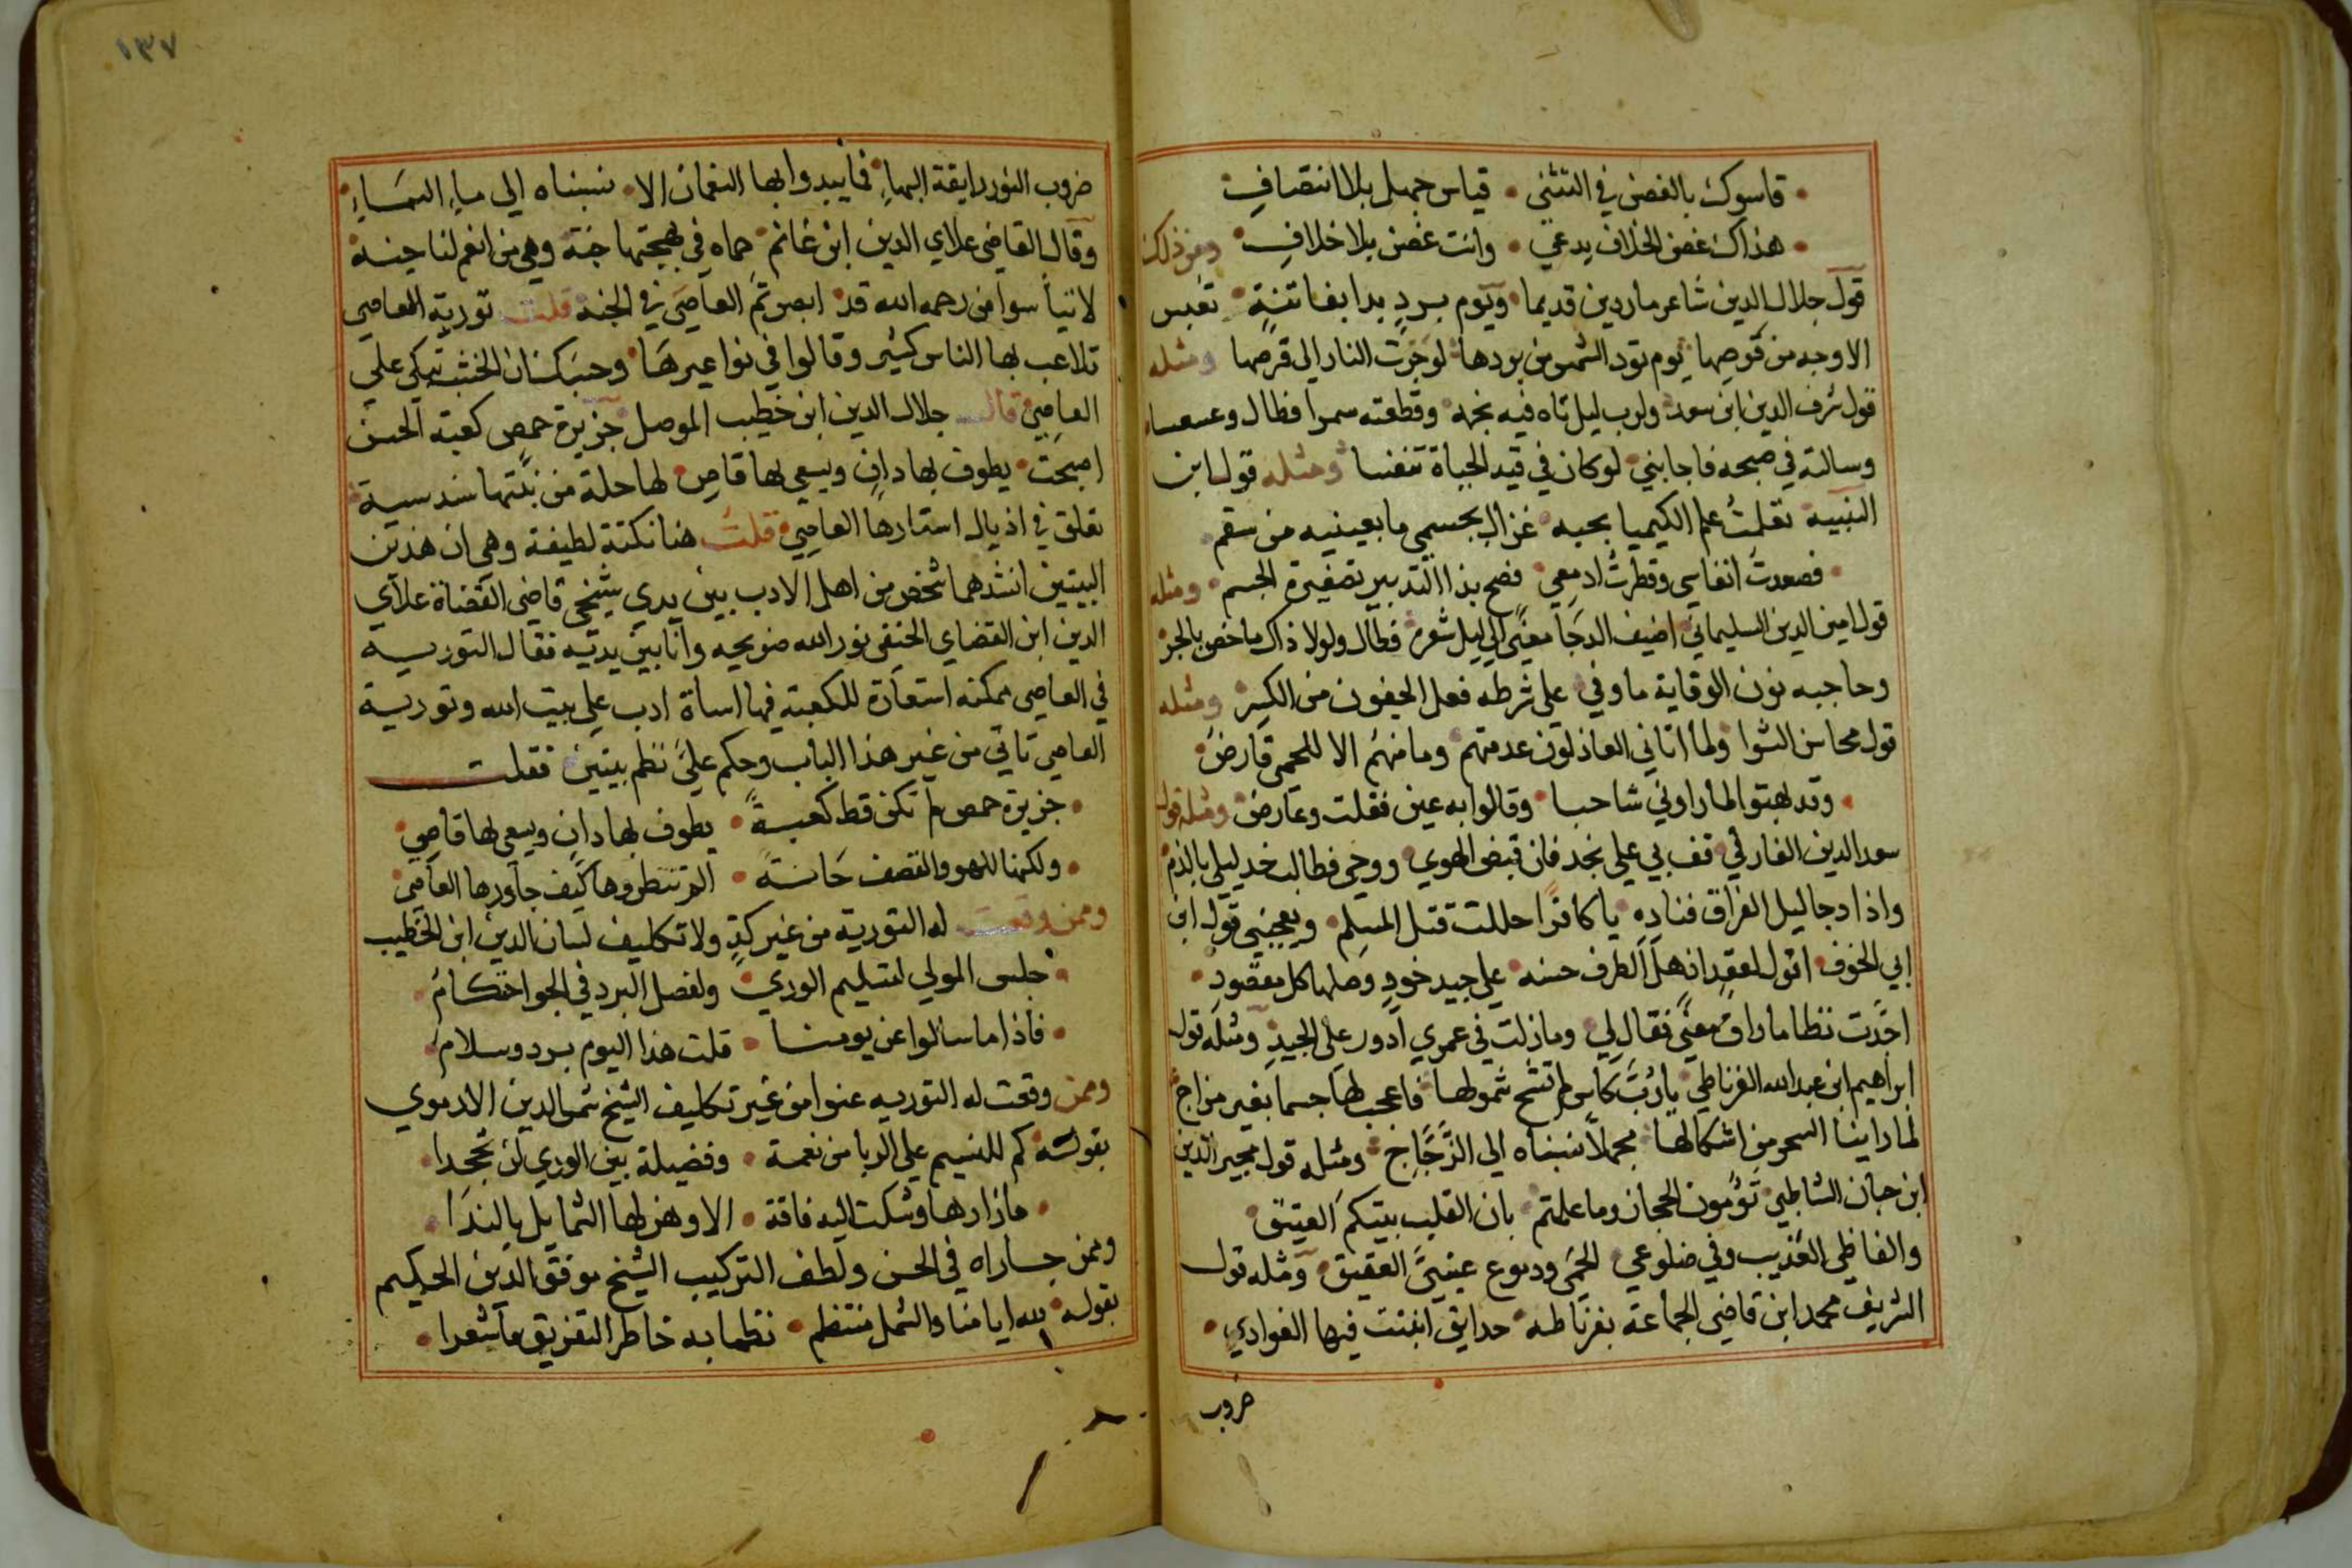 قاسوك بالغصن في التثني • قياس جهل بلا انتصاف
هذاك غصن الخلاف يدعي • وانت غصن بلا خلاف • ومن ذلك
قول جلال الدين شاعر ماردين قديما • ويوم برد بدا بفاتنة • تعبس
الاوجه من قرصها • يوم تود الشمس من بردها • لو جرت النار الى قرصها • ومثله
قول شرف الدين ابن سعد • ولرب ليل تاه فيه نجمه • وقطعته سهرا فطال وعسعسا
وسالته في صبحه فاجابني • لو كان في قيد الحياة تنفسا • ومثله قول ابن
النبيه • تعلمت علم الكيميا بحبه • غزال بجسمي ما بعينيه من سقم
فصعدت انفاسي وقطرت ادمعي • فصح بذا التدبير تصفيرة الجسم • ومثله
قول امين الدين السليماني • اضيف الدجا معنى الى ليل شعره • فطال ولولا ذاك ما خص بالجر
وحاجبه نون الوقاية ما وفي • على شرطه فعل الجفون من الكسر • ومثله
قول محاسن الشوا • ولما اتاني العاذلون عدمتهم • وما منهم الا للحمي قارض
وقد بهتوا لما راوني شاحبا • وقالوا به عين فقلت وعارض • ومثله قول
سعد الدين الفارقي • قف بي على نجد فان قبض الهوي • روحي فطالب خد ليلي بالدم
واذا دجا ليل الفراق فناده • يا كافرا حللت قتل المسلم • ويعجبني قول ابن
ابي الخوف • اقول لعقد اذهل الطرف حسنه • على جيد خود وصلها كل مقصود •
اخذت نظاما راق معنى فقال لي • وما زلت في عمري ادور على الجيد • ومثله قول
ابراهيم ابن عبد الله الغرناطي • يا رب كاس لم تشج شمولها • فاعجب لها جسما بغير مزاج
لما راينا السحر من اشكالها • مجملا نسبناه الى الزجاج • ومثله قول مجير الدين
ابن جان الشاطبي • تؤمون الحجاز وما علمتم • بان القلب بيتكم العتيق •
والفاظي العذيب وفي ضلوعي • الحمى ودموع عينيَّ العقيق • ومثله قول
الشريف محمد ابن قاضي الجماعة بغرناطه • حدايق انبتت فيها الغوادي •
ضروب
١٣٧
ضروب النور رايقة البهاء • فما يبدوا بها النعمان الا • نسبناه الي ماء السماء •
وقال القاضي علاي الدين ابن غانم • حماه في بهجتها جنة • وهي من الغم لنا جنه
لا تياسوا من رحمه الله قد • ابصرتم العاصي في الجنه • قلت تورية العاصي
تلاعب بها الناس كثير وقالوا في نواعيرها • وحسبك ان الخشب تبكي علي
العاصي • قال جلال الدين ابن خطيب الموصل • جزيرة حمص كعبة الحسن
اصبحت • يطوف بها دان ويسعى لها قاص • لها حلة من نبتها سندسية
تعلق في اذيال استارها العاصي • قلت هنا نكتة لطيفة وهي ان هذين
البيتين انشدهما شخص من اهل الادب بين يدي شيخي قاضي القضاة علاي
الدين ابن القضاي الحنفي نور الله ضريحه وانا بين يديه فقال التوريه
في العاصي ممكنه استعارة للكعبة فيها اساة ادب على بيت الله وتورية
العاصي تاتي من غير هذا الباب وحكم عليَّ نظم بيتين فقلت
• جزيرة حمص لم تكن قط كعبةً • يطوف بها دان ويسعى لها قاصي •
• ولكنها للهو والقصف حانة • الم تنظروها كيف جاورها العاصي •
وممن وقعت له التورية من غير كدٍ ولا تكليف لسان الدين ابن الخطيب
• جلس المولي لتسليم الوري • ولفصل البرد في الجو احتكام •
• فاذا ما سالوا عن يومنا • قلت هذا اليوم برد وسلام •
وممن وقعت له التوريه عنوا من غير تكليف الشيخ شمس الدين الادموي
بقوله • كم للنسيم على الربا من نعمة • وفضيلة بين الوري لن تجحدا •
• ما زارها وشكت اليه فاقة • الا وهز لها الشمايل بالندا •
وممن جاراه في الحسن ولطف التركيب الشيخ موفق الدين الحكيم
بقوله • لله ايامنا والشمل منتظم • نظما به خاطر التفريق ما شعرا •